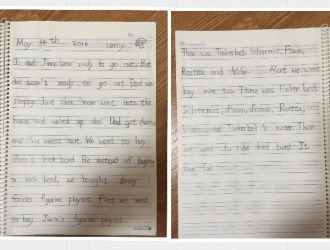 May 14th 2016 sunny
I, and Jimin were ready to go out. But
dad wasn't ready to go out. Dad was
sleeping. Just then mom went into the
house and waked up dad. Dad got dressed
and we went out. We went to buy
Jimin's kick bord. But instead of buying
a kick bord, we bought disney
fairies figurine playset. First we went
to buy Jimin's figurine playset.
There was Tinkerbell, Silvermist, Fawn,
Rosetta and Vidia. Next we went
buy mine too. There was Tinker bell,
Silvermist, Fawn, Iridessa, Rosetta,
Tinkerbell's sister. Then
we went to ride kick bord. It
was fun.